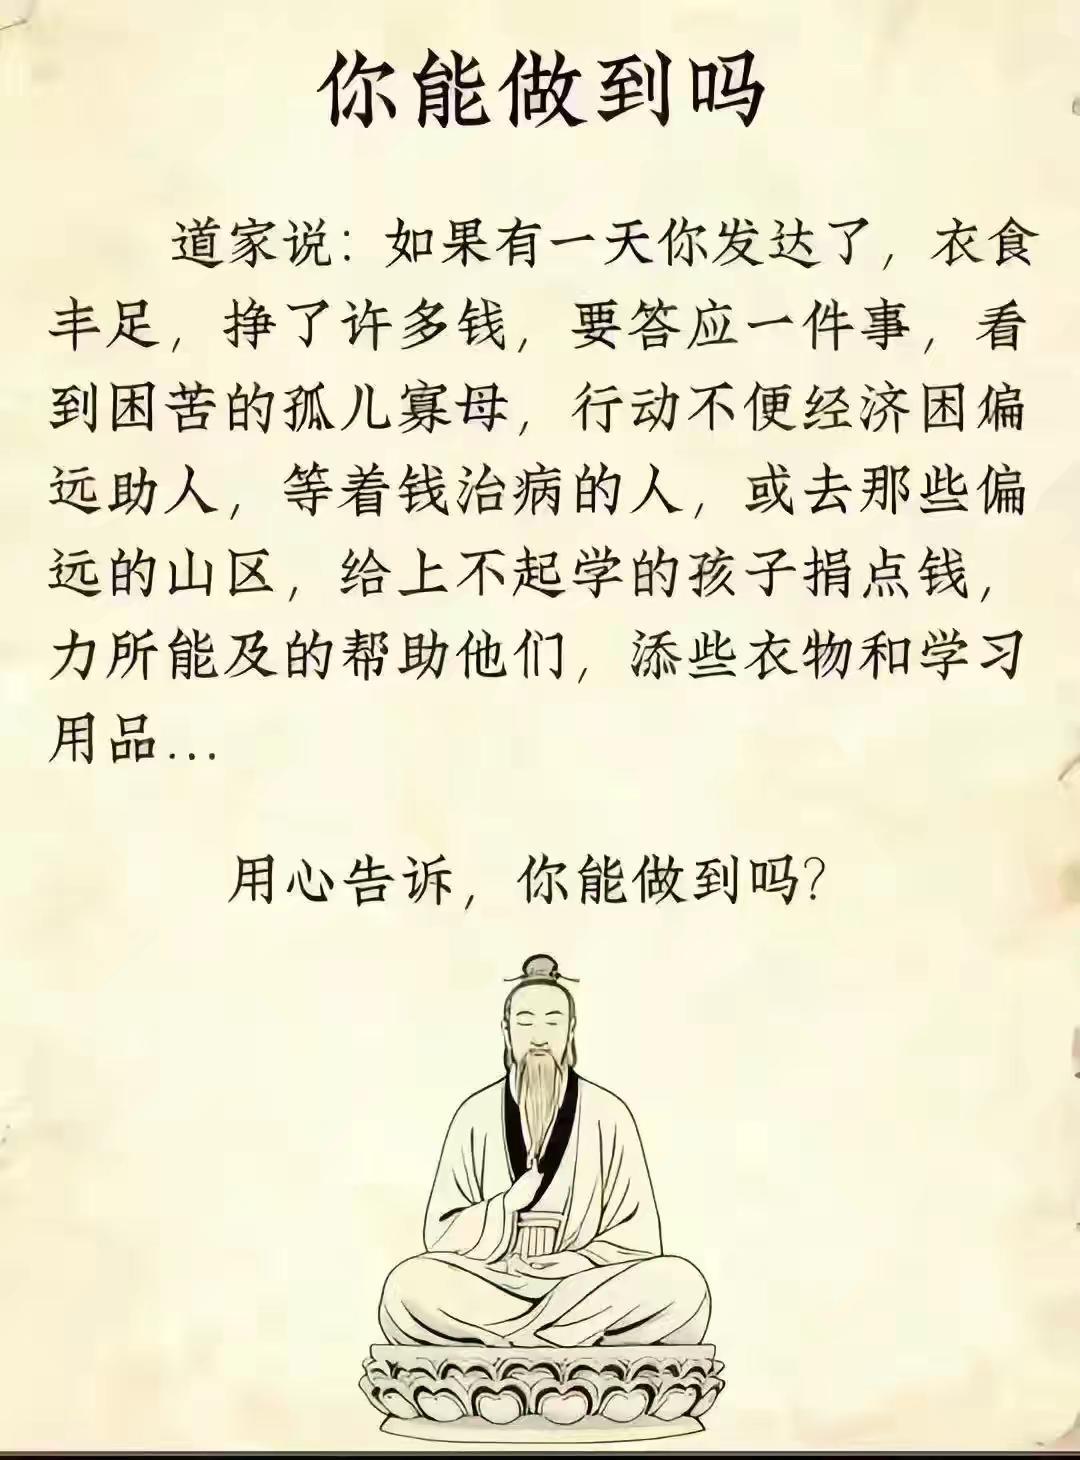 你能做到吗
道家说：如果有一天你发达了，衣食
丰足，挣了许多钱，要答应一件事，看
到困苦的孤儿寡母，行动不便经济困偏
远助人，等着钱治病的人，或去那些偏
远的山区，给上不起学的孩子捐点钱，
力所能及的帮助他们，添些衣物和学习
用品…
用心告诉，你能做到吗？